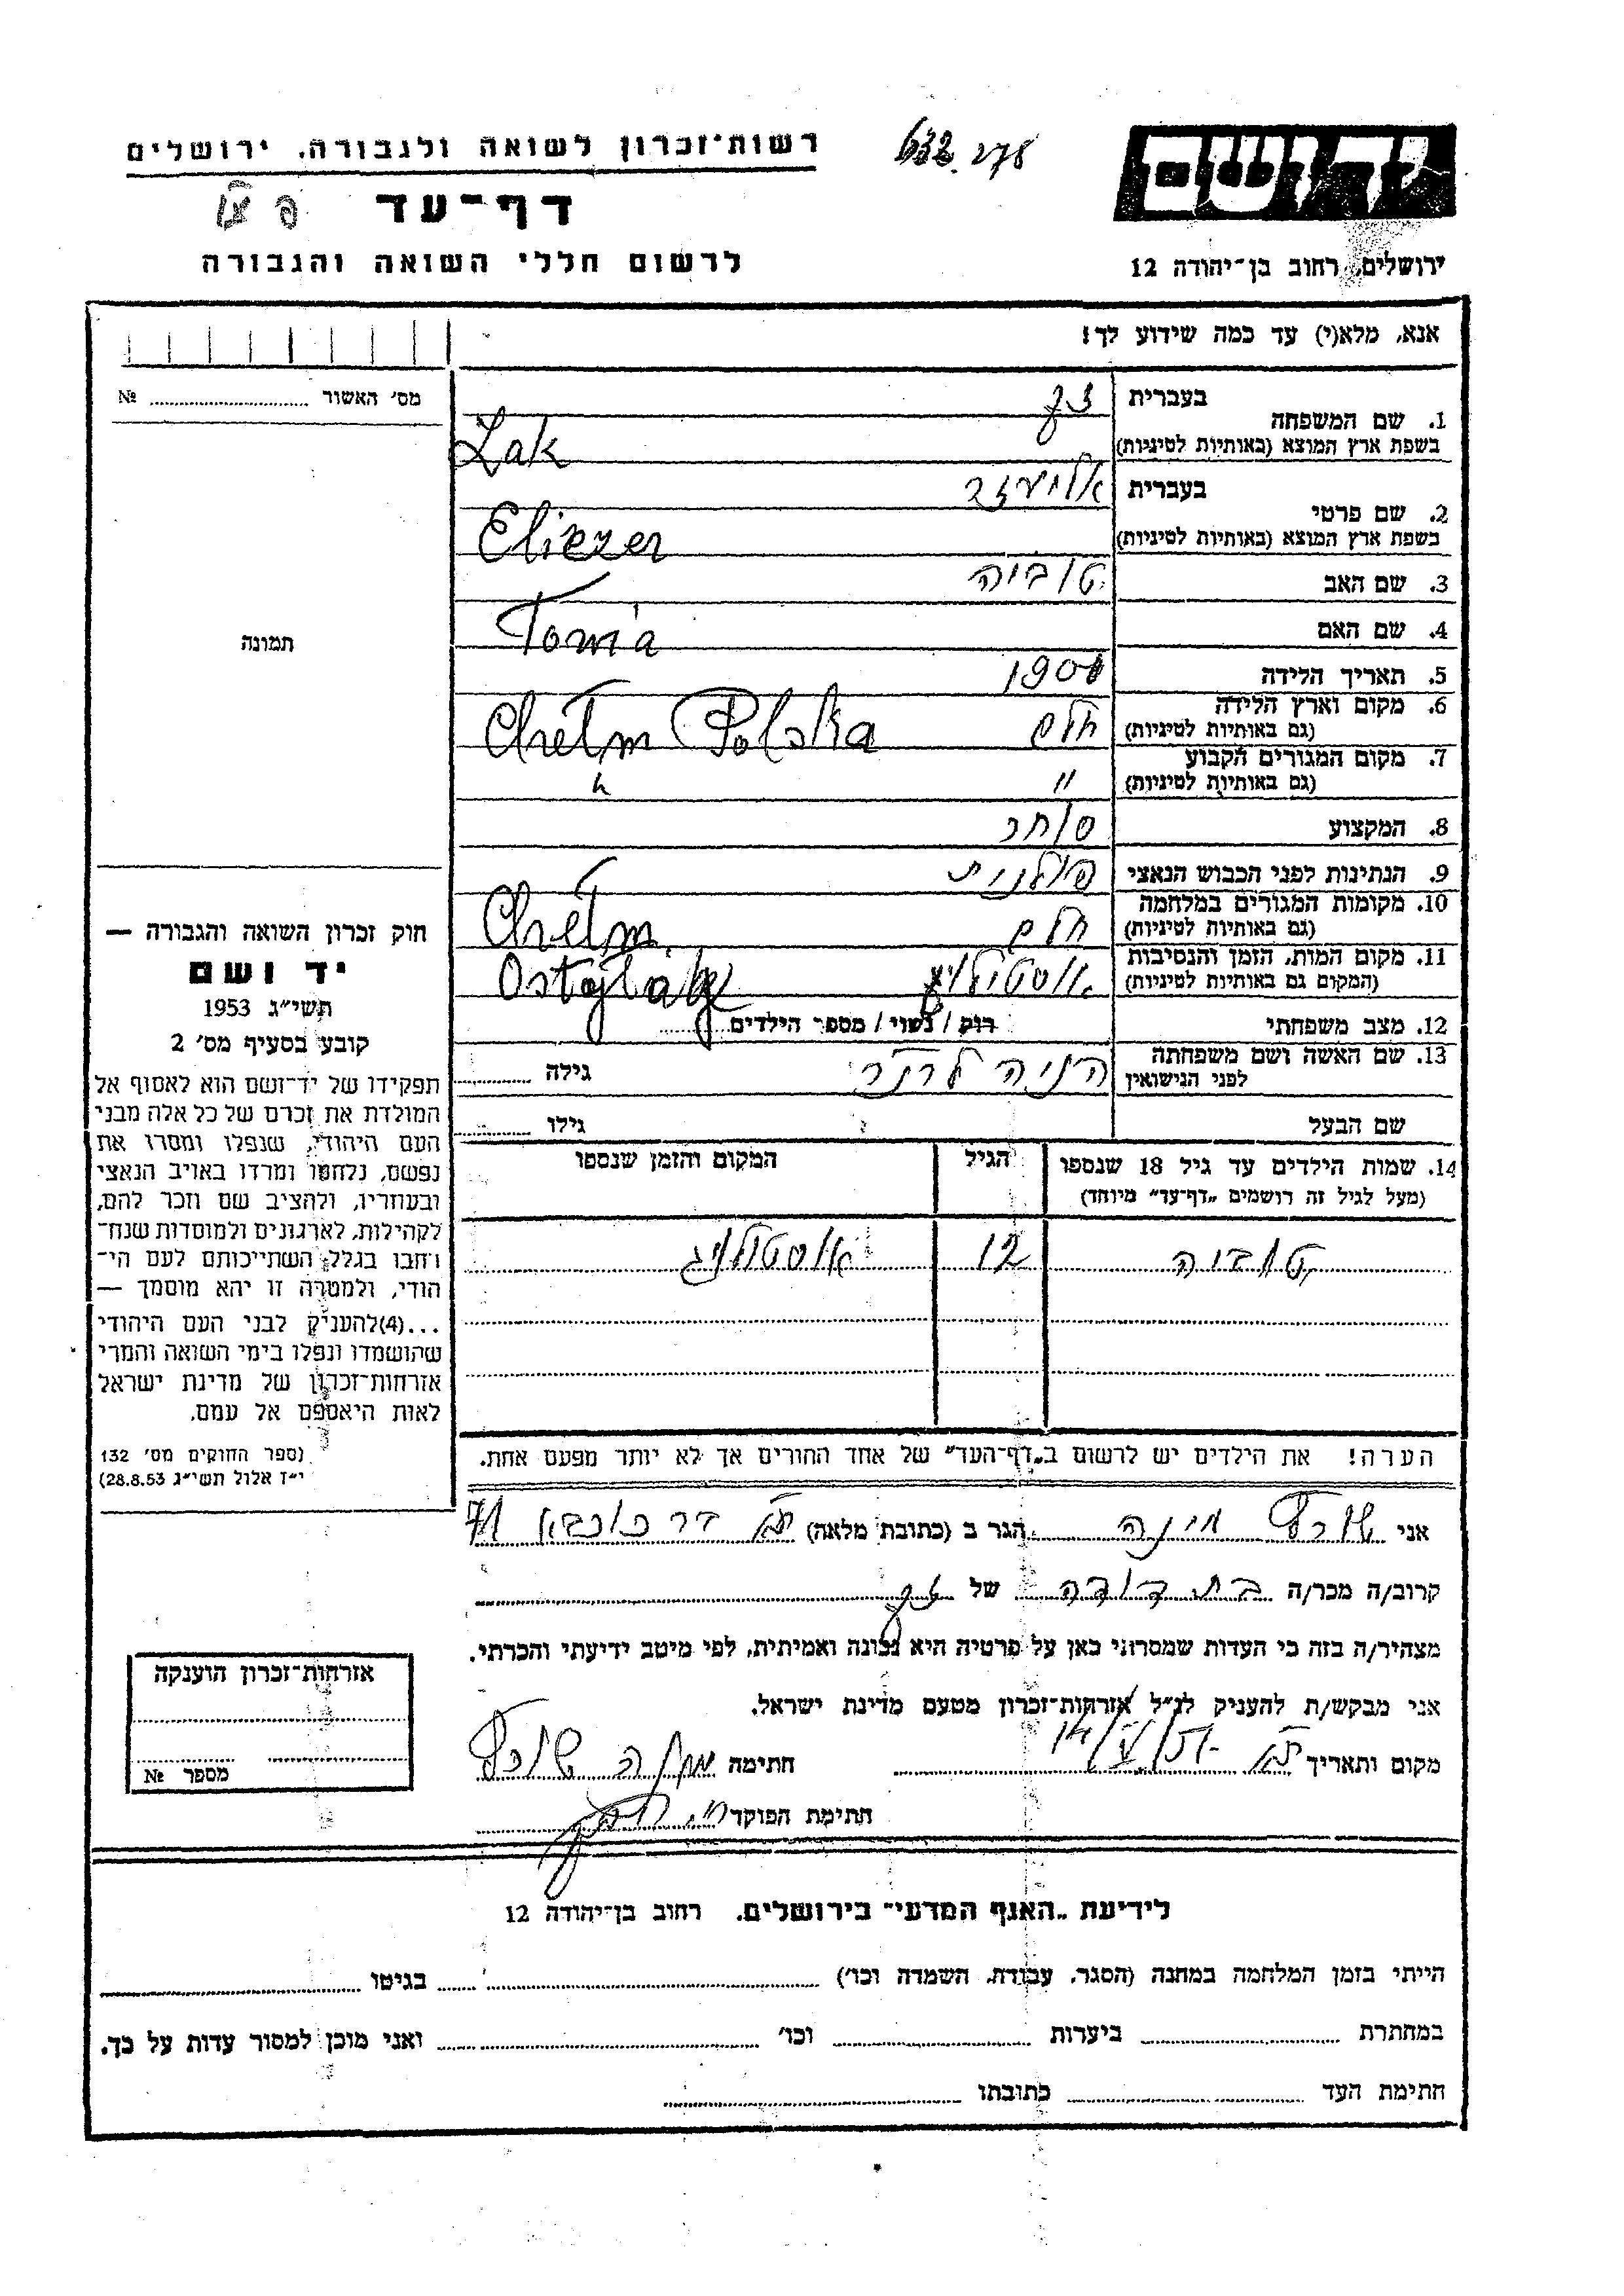 632. 278
יד ושם
ירושלים, רחוב בן־יהודה 12
רשות־זכרון לשואה ולגבורה, ירושלים
דף־עד
לרשום חללי השואה והגבורה
אנא, מלא(י) עד כמה שידוע לך!
1. שם המשפחה
בעברית זק
בשפת ארץ המוצא (באותיות לטיניות) Zak
2. שם פרטי
בעברית אליעזר
בשפת ארץ המוצא (באותיות לטיניות) Eliezer
3. שם האב טוביה
4. שם האם Towia
5. תאריך הלידה
6. מקום וארץ הלידה
(גם באותיות לטיניות) חלם Chełm Polska
7. מקום המגורים הקבוע
(גם באותיות לטיניות) " "
8. המקצוע סוחר
9. הנתינות לפני הכבוש הנאצי פולנית
10. מקומות המגורים במלחמה
(גם באותיות לטיניות) חלם Chełm
11. מקום המות, הזמן והנסיבות
(המקום גם באותיות לטיניות)
12. מצב משפחתי רוק / נשוי / מספר הילדים
13. שם האשה ושם משפחתה
לפני הנישואין הניה לרנר גילה
שם הבעל גילו
14. שמות הילדים עד גיל 18 שנספו הגיל המקום והזמן שנספו
(מעל לגיל זה רושמים „דף־עד" מיוחד)
טוביה 12
הערה! את הילדים יש לרשום ב„דף־העד" של אחד ההורים אך לא יותר מפעם אחת.
מס' האשור №
תמונה
חוק זכרון השואה והגבורה —
יד ושם
תשי"ג 1953
קובע בסעיף מס' 2
תפקידו של יד־ושם הוא לאסוף אל
המולדת את זכרם של כל אלה מבני
העם היהודי, שנפלו ומסרו את
נפשם, נלחמו ומרדו באויב הנאצי
ובעוזריו, ולהציב שם וזכר להם,
לקהילות, לארגונים ולמוסדות שנח־
רבו בגלל השתייכותם לעם הי־
הודי, ולמטרה זו יהא מוסמך —
...(4)להעניק לבני העם היהודי
שהושמדו ונפלו בימי השואה והמרי
אזרחות־זכרון של מדינת ישראל
לאות היאספם אל עמם.
(ספר החוקים מס' 132
י"ז אלול תשי"ג 28.8.53)
אני שורץ מינה הגר ב (כתובת מלאה) ת"א בר כוכבא 71
קרוב/ה מכר/ה בת דודה של זק
מצהיר/ה בזה כי העדות שמסרתי כאן על פרטיה היא נכונה ואמיתית, לפי מיטב ידיעתי והכרתי.
אני מבקש/ת להעניק לנ"ל אזרחות־זכרון מטעם מדינת ישראל.
מקום ותאריך ת"א חתימה מינה שורץ
חתימת הפוקד
אזרחות־זכרון הוענקה
מספר №
לידיעת „האגף המדעי" בירושלים, רחוב בן־יהודה 12
הייתי בזמן המלחמה במחנה (הסגר, עבודת, השמדה וכו') בגיטו
במחתרת ביערות וכו' ואני מוכן למסור עדות על כך.
חתימת העד כתובתו